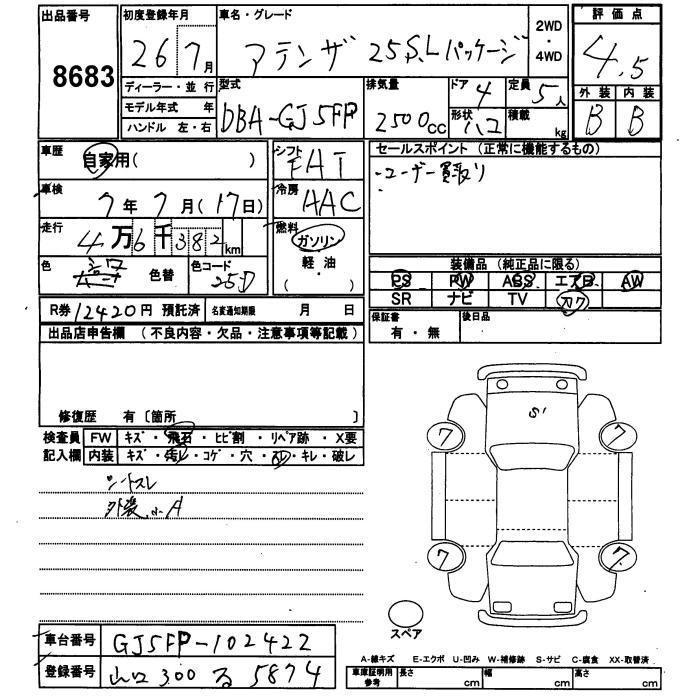 出品番号 8683
初度登録年月 26 7月
車名・グレード アテンザ 25S.Lパッケージ
2WD・4WD
評価点 4.5
ディーラー・並行
モデル年式 年
ハンドル 左・右
型式 DBA-GJ5FP
排気量 2500cc
ドア 4
形状 ハコ
定員 5人
積載 kg
外装 B
内装 B
車歴 自家用( )
シフト FAT
セールスポイント (正常に機能するもの)
・ユーザー買取り
車検 7年7月(17日)
冷房 AAC
走行 4万6千382km
燃料 ガソリン・軽油・( )
色 シロ
色替
色コード 25D
装備品 (純正品に限る)
PS PW ABS エアB AW
SR ナビ TV カワ
R券 12420円 預託済
名変通知期限 月 日
保証書 有・無
後日品
出品店申告欄 (不良内容・欠品・注意事項等記載)
修復歴 有 〔箇所 〕
検査員記入欄
FW キズ・飛石・ヒビ割・リペア跡・X要
内装 キズ・汚レ・コゲ・穴・スレ・キレ・破レ
シートスレ
外装小A
S'
7 7
7 7
スペア
車台番号 GJ5FP-102422
登録番号 山口 300 る 5874
A-線キズ E-エクボ U-凹み W-補修跡 S-サビ C-腐食 XX-取替済
車庫証明用参考 長さ cm 幅 cm 高さ cm